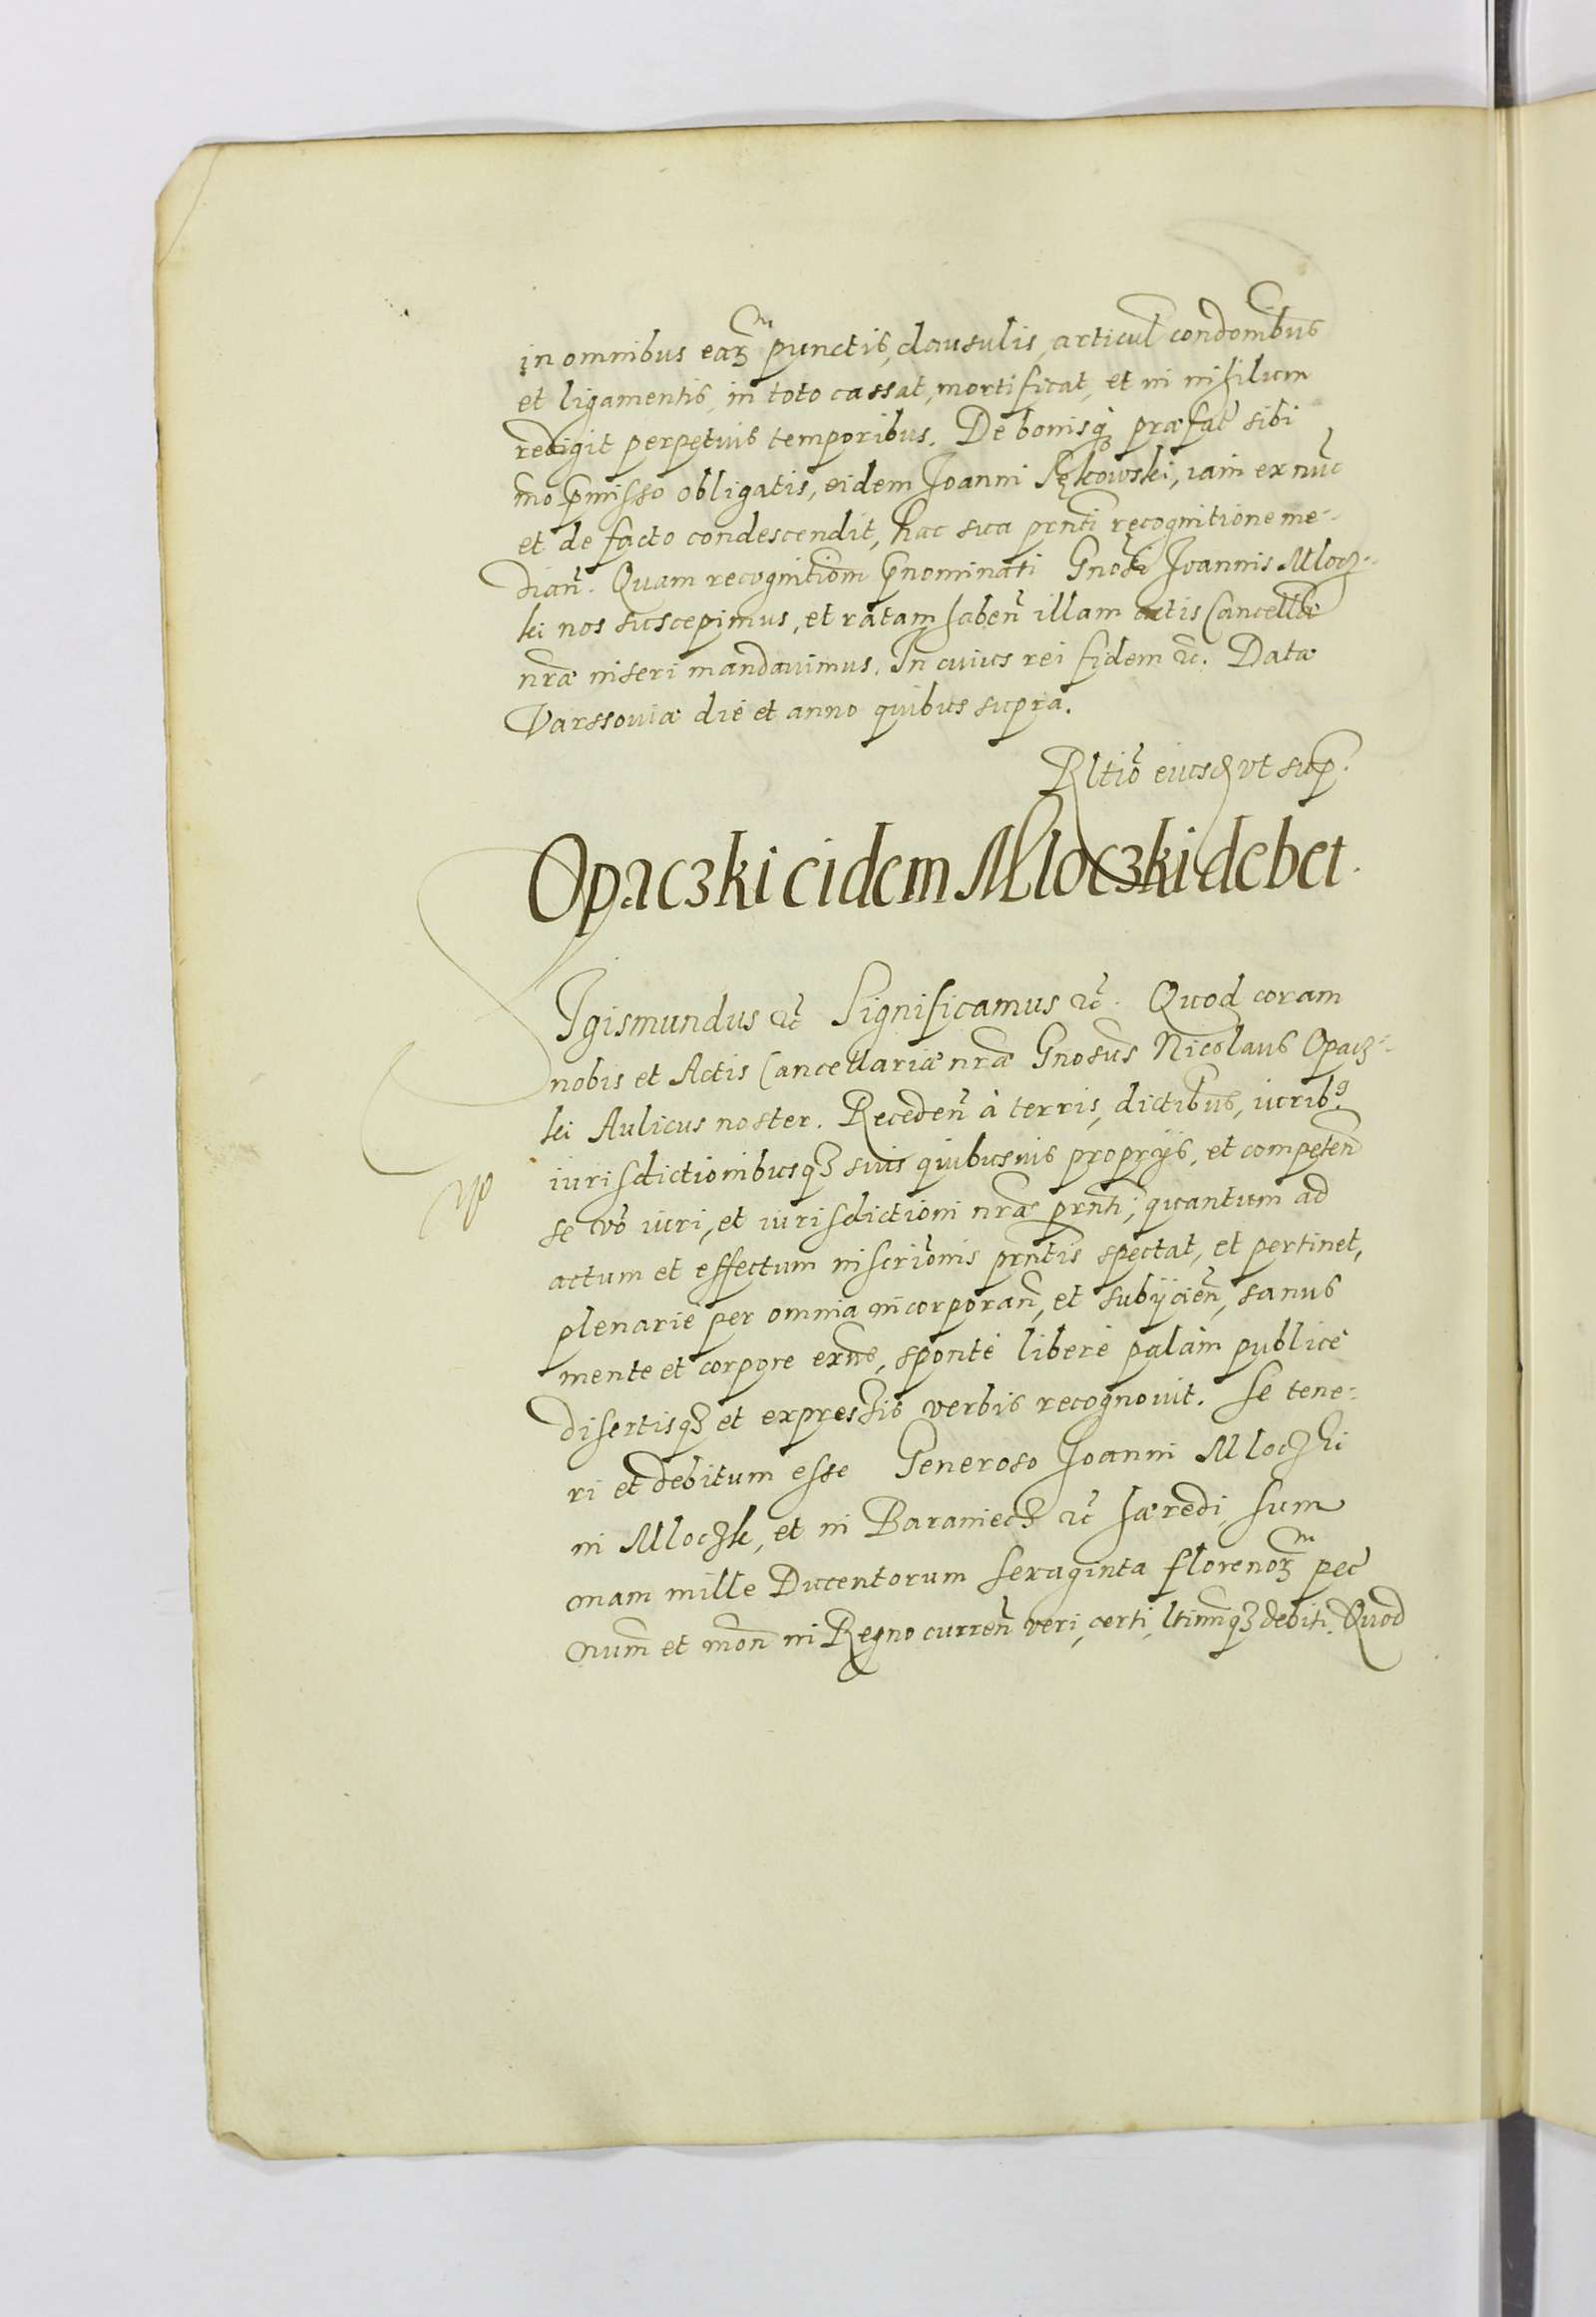 in omnibus earꝫ punctis, clausulis, articul condõnibus
et ligamentis, in toto cassat, mortificat, et in nihilum
redigit perpetuis temporibus. De bonisqꝫ præfat sibi
mo pmisso obligatis, eidem Joanni Sękowski, iam ex nuc
et de facto condescendit, hac sua prnti recognitione me-
dian. Quam recognitiom pnominati Gnosi Joannis Mlocz-
ki nos suscepimus, et ratam haben illam actis Cancellæ
nræ inseri mandauimus. In cuius rei fidem ⁊c. Datæ
Varssouiæ die et anno quibus supra.
Rltio eiusd vt sup.
Opaczki eidem Mloczki debet.
SIgismundus ⁊c Significamus ⁊c. Quod coram
nobis et Actis Cancellariæ nræ Gnosus Nicolaus Opacz-
ki Aulicus noster. Receden à terris, dictibus, iurib9
iurisdictionibusqꝫ suis quibusuis proprijs, et competen
se vo iuri, et iurisdictioni nræ prnti, quantum ad
actum et effectum inscrionis prntis spectat, et pertinet,
plenariè per omnia incorporan, et subijcien, sanus
mente et corpore exns, spontè liberè palàm publicè
disertisqꝫ et expressis verbis recognouit. Se tene-
ri et debitum esse Generoso Joanni Mloczki
in Mloczk, et in Baraniecz ⁊c hæredi, sum
mam mille Ducentorum sexaginta florenorꝫ pec
num et mon in Regno curren veri, certi, ltimiqꝫ debiti. Quod